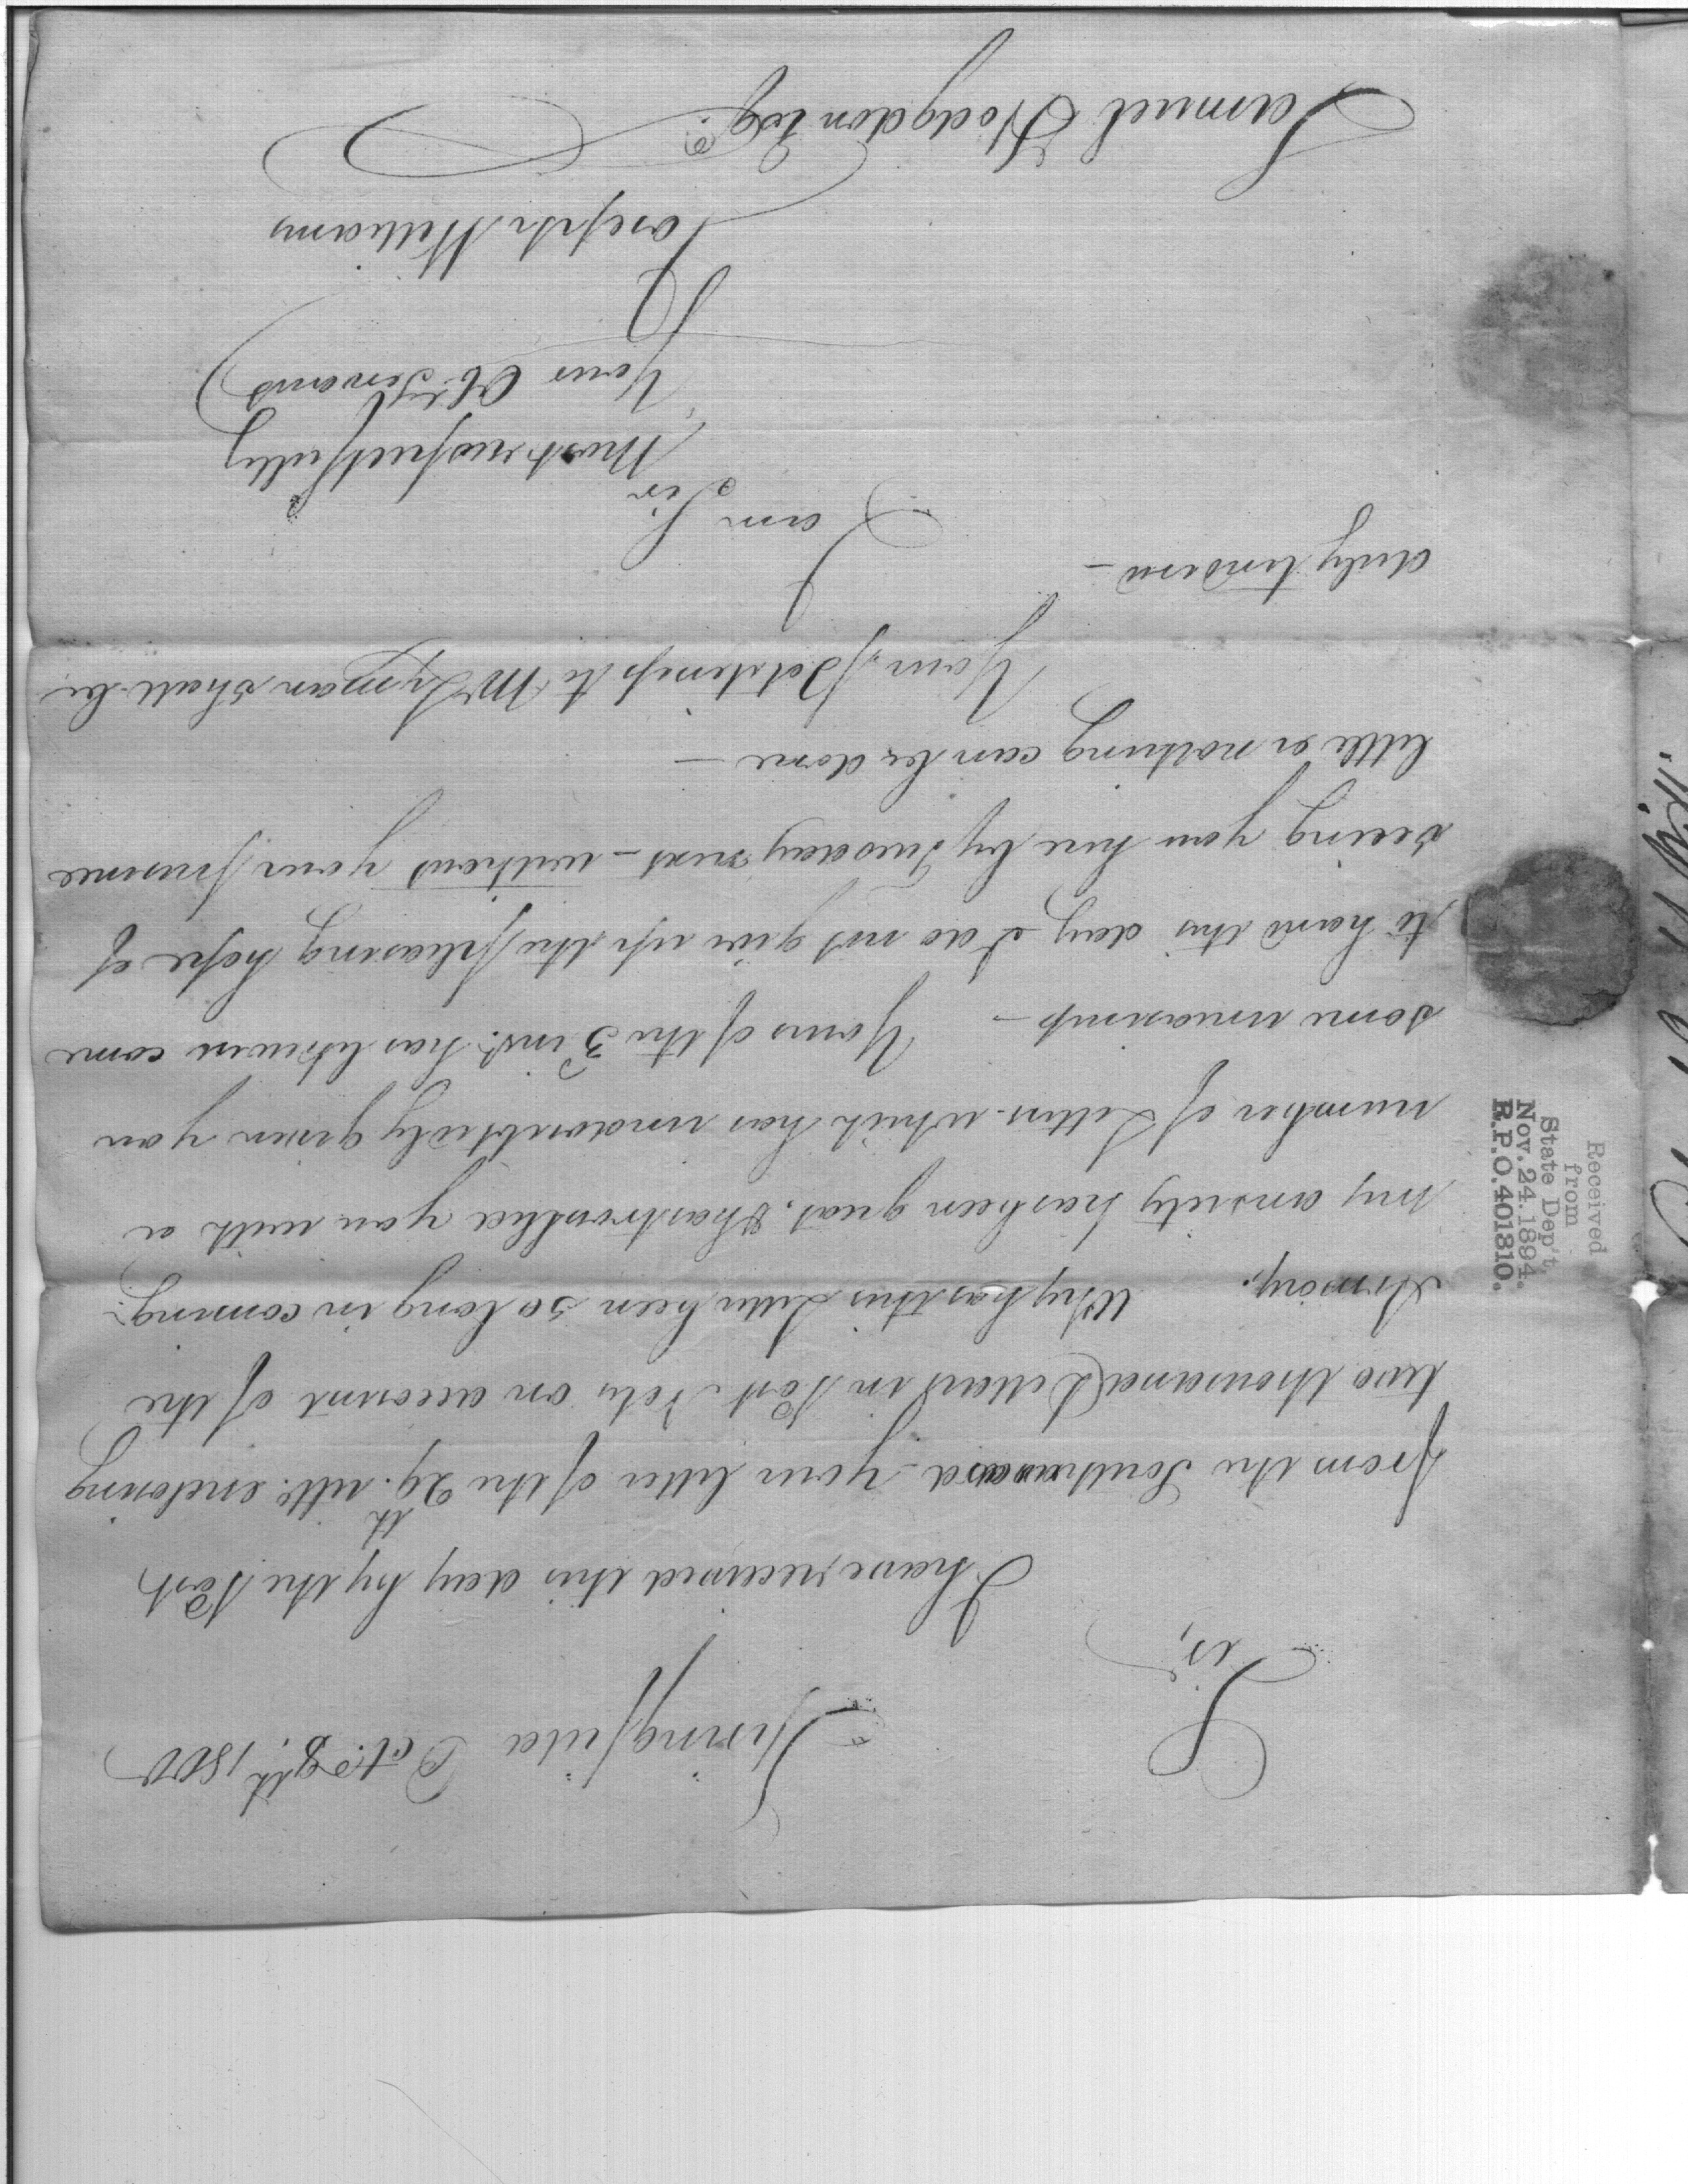 Springfield Octo. 8th. 1800
Sir,
I have received this day by the Post
from the Southward - your letter of the 29th. ulto. enclosing
two thousand Dollars in Post Notes on account of the
Armory. Why has this Letter been so long in coming?
my anxiety has been great. & has troubled you with a
number of Letters which has undoubtedly given you
some uneasiness - Yours of the 3d inst. has likewise come
to hand this day I do not give up the pleasing hope of
seeing you here by Tuesday next - without your presence
little or nothing can be done -
Your Politeness to Mr Lyman shall be
duly tendered -
I am Sir
Most respectfully
Your Obt. Servant
Joseph Williams
Samuel Hodgdon Esq.
Received
from
State Dep't,
Nov. 24. 1894.
R.P.O. 401310.